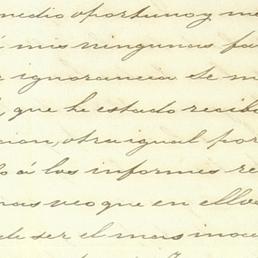 medio oportuno y me
á mis ningunas fa
r ignorancia se m
, que he estado recibi
cion, otra igual por
lo á los informes re
mas veo que en ellos
de ser el mas inoce